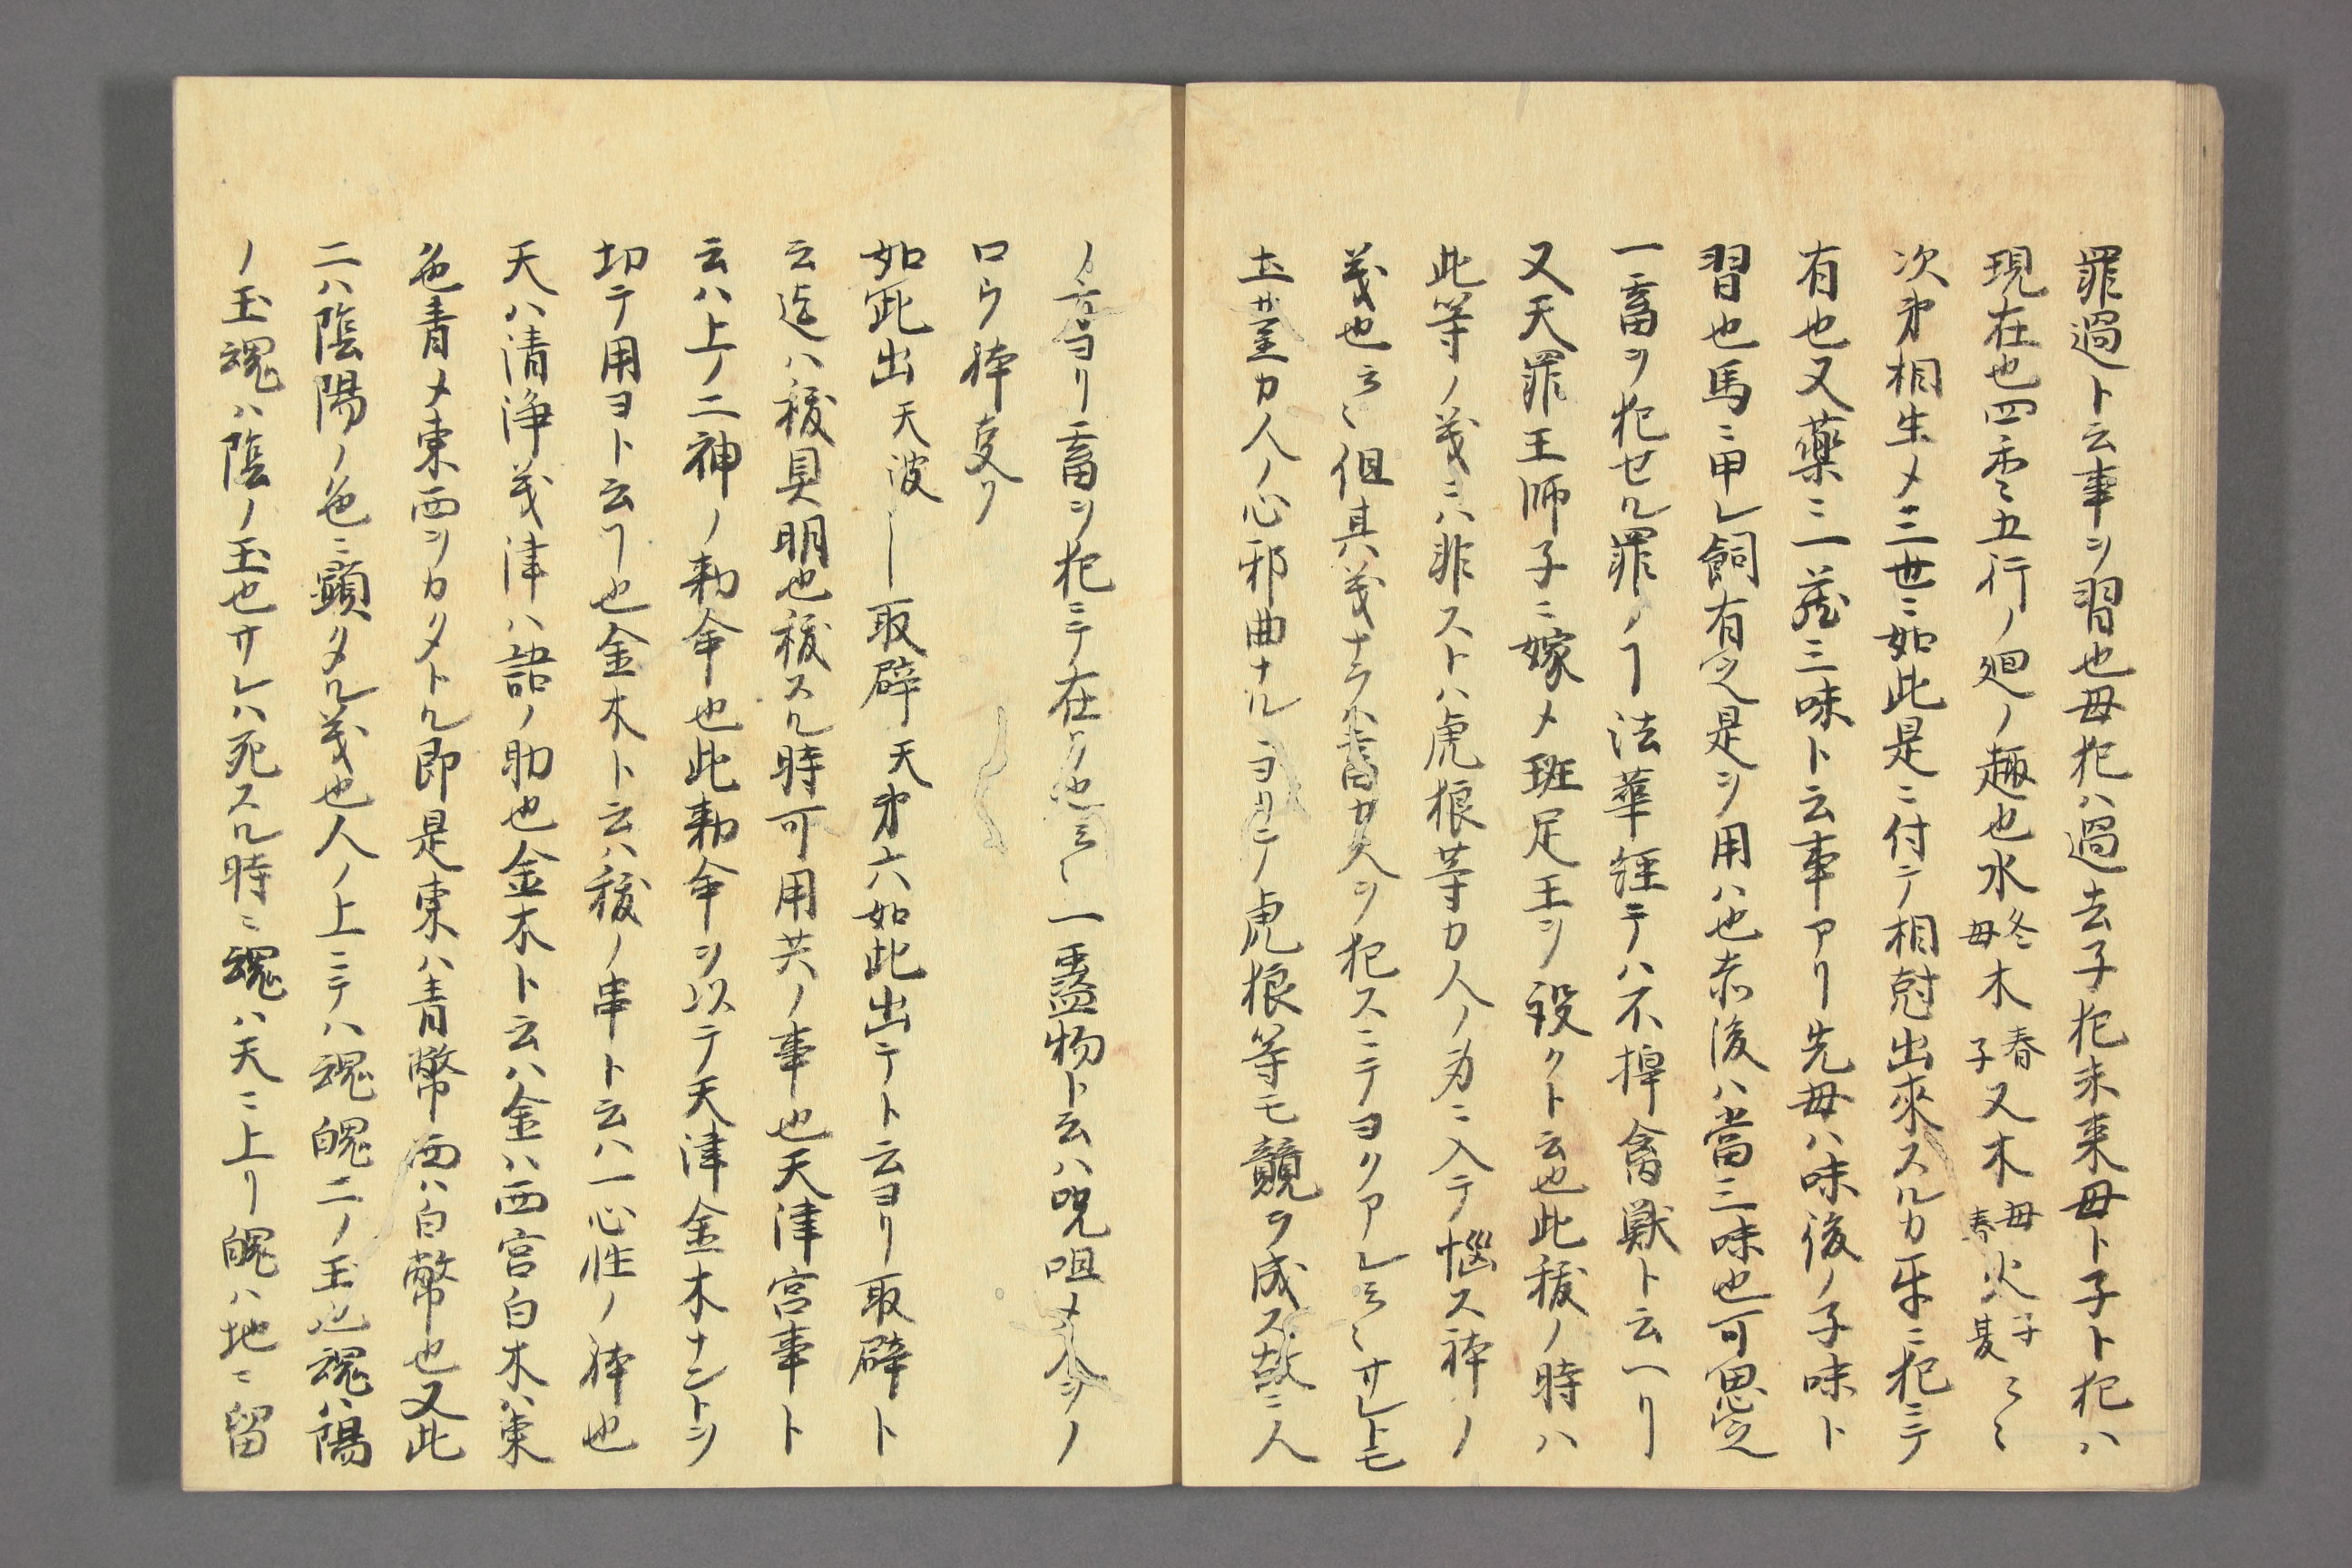 罪過ト云事ヲ習也母犯ハ過去子犯未来母ト子ト犯ハ
現在也四季五行ノ廻ノ趣也水冬母木春子又木母春火子夏云々
次第相生メ三世ニ如此是ニ付テ相尅出来スルカ年ニ犯ミテ
有也又薬ニ一莚三味ト云事アリ先母ハ味後ノ子味ト
習也馬ニ甲レ飼有之是ヲ用ハ也赤後ハ當三味也可思定
一畜ヲ犯セル罪ノヿ法華経テハ不揮禽獣ト云ヘリ
又天羅王師子ニ嫁メ班足王ヲ設クト云也此秡ノ時ハ
此等ノ義ニハ非ストハ虎狼等カ人ノ為ニ入テ悩ス神ノ
義也云々但其ハ義ナラス畜カ人ヲ犯スニテヨクアレ云々サレトモ
カ人ノ心邪曲ナルヨリニノ虎狼等モ競ヲ成ス故ニ人
ノ方ヨリ畜ヲ犯ニテ在ク也云々一蠱物ト云ハ呪咀メ人ヲノ
ロウ躰支リ
如此出天波―取辟天第六如此出テト云ヨリ取辟ト
云迄ハ秡具明也秡スル時可用共ノ事也天津宮事ト
云ハ上ノ二神ノ勅命也此勅命ヲ以テ天津金木ナントヲ
切テ用ヨト云ヿ也金木ト云ハ秡ノ串ト云ハ一心性ノ躰也
天ハ清浄義津ハ語ノ助也金木ト云ハ金ハ西宮白木ハ東
色青メ東西ヲカタトル即是東ハ青幣西ハ白幣也又此
二ハ陰陽ノ色ニ顕タル義也人ノ上ニテハ魂魄二ノ玉也魂ハ陽
ノ玉魂ハ陰ノ玉也サレハ死スル時ニ魂ハ天ニ上リ魄ハ地ニ留